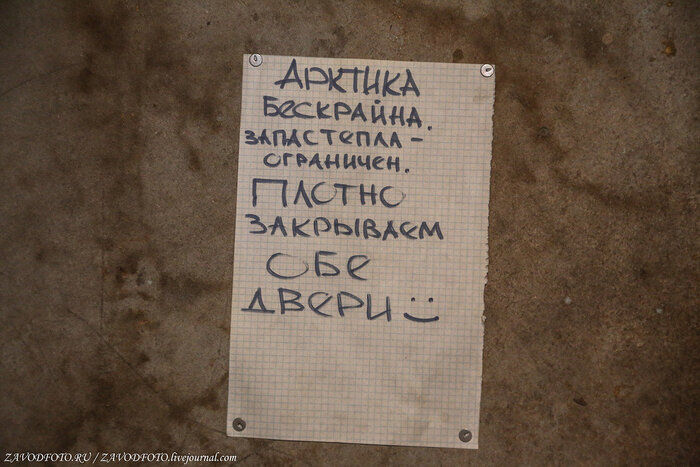 АРКТИКА
БЕСКРАЙНА.
ЗАПАС ТЕПЛА –
ОГРАНИЧЕН.
ПЛОТНО
ЗАКРЫВАЕМ
ОБЕ
ДВЕРИ :)
ZAVODFOTO.RU / ZAVODFOTO.livejournal.com